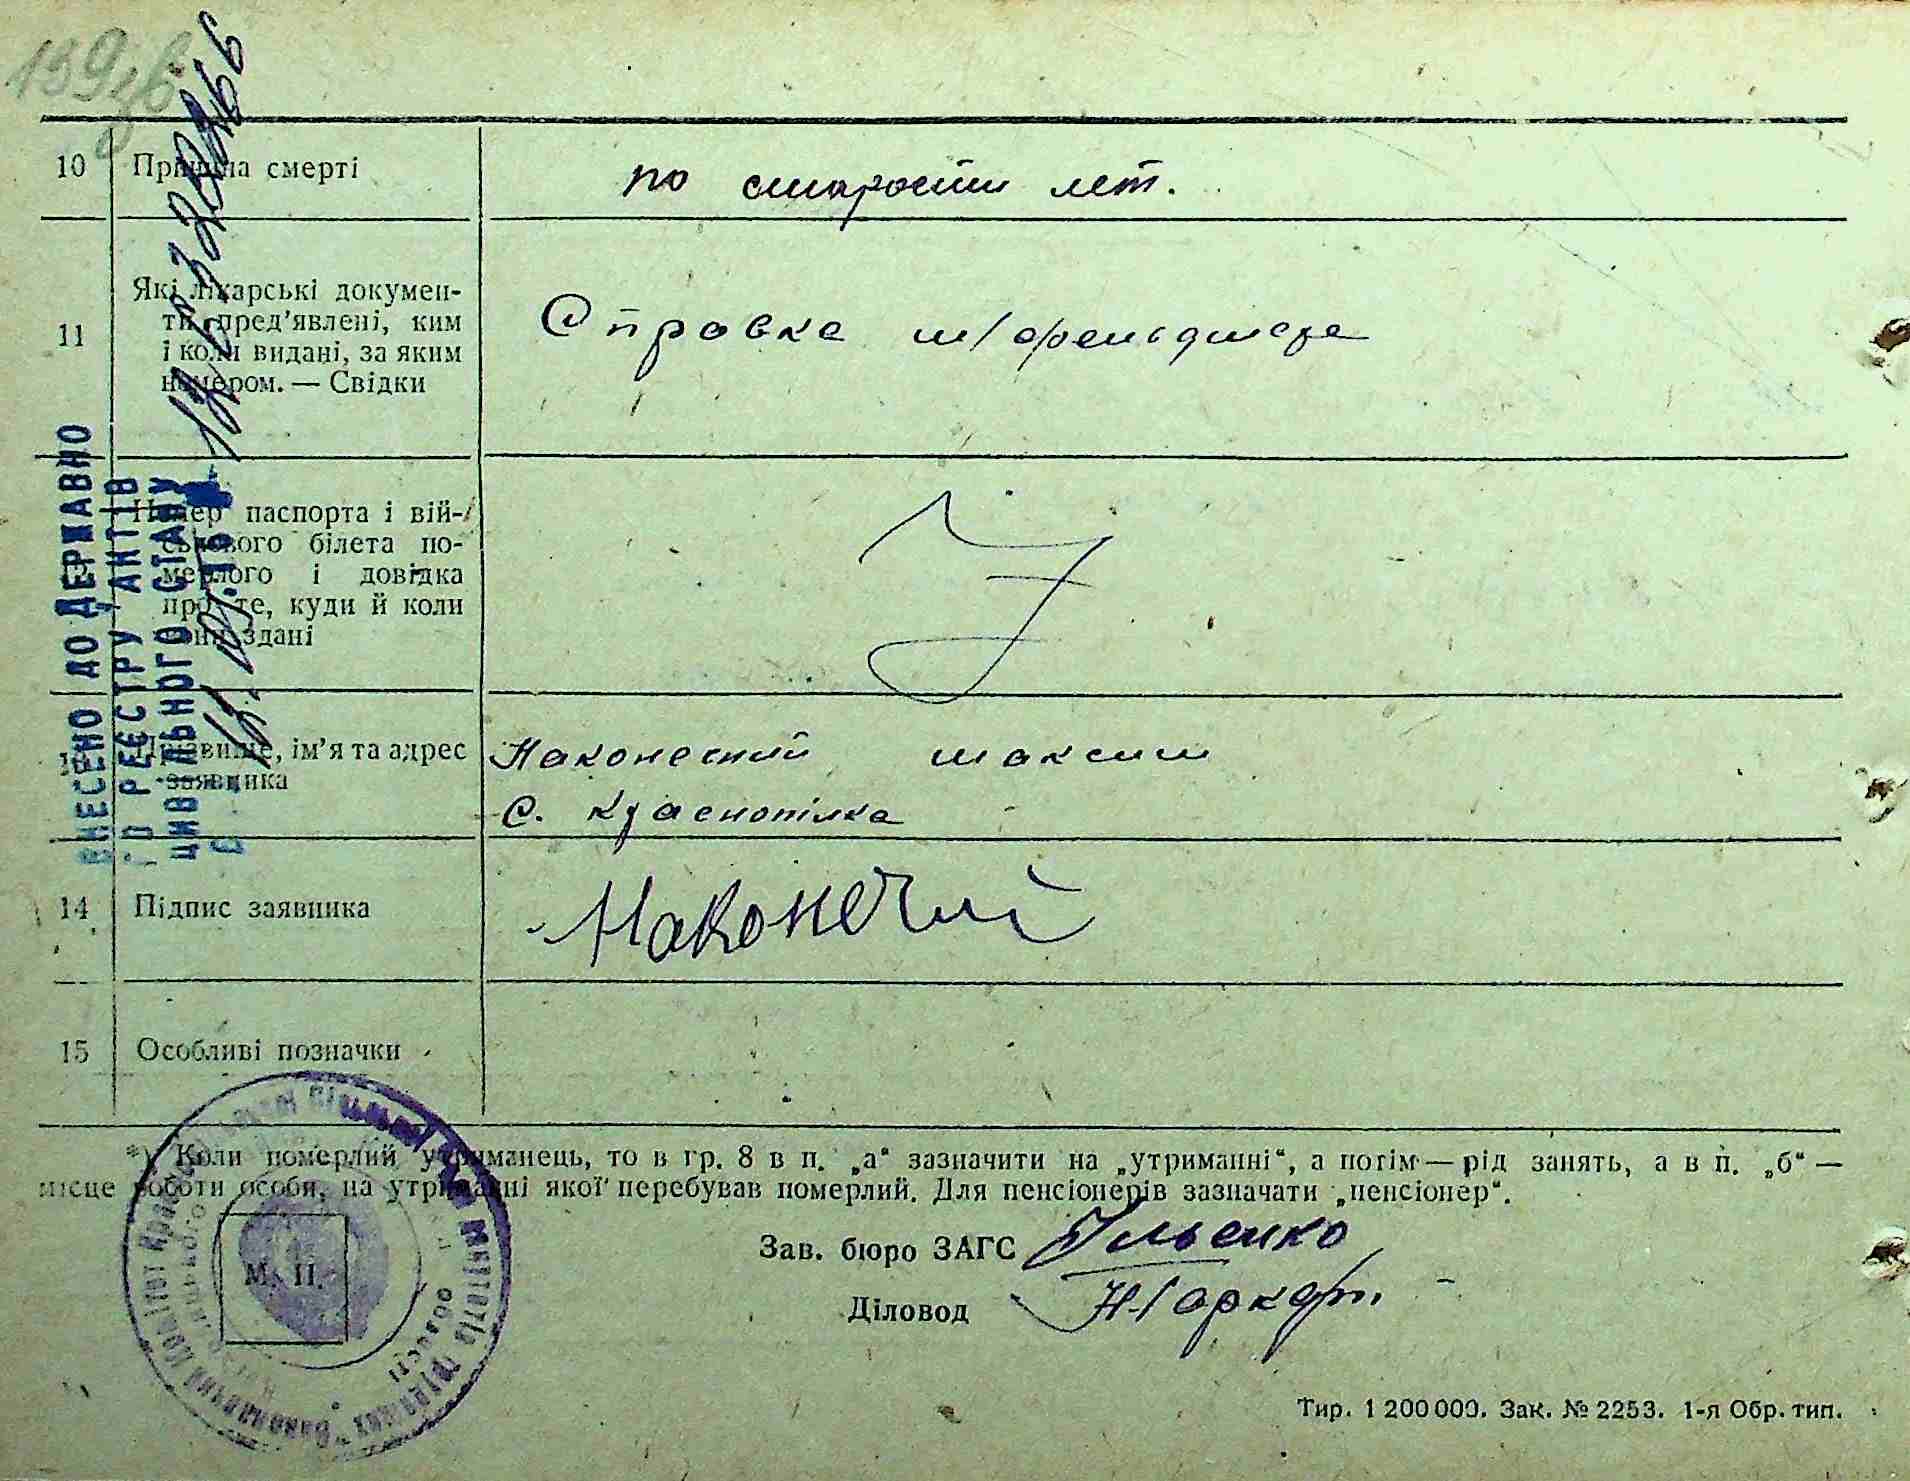 10 Причина смерті по старости лет.
11 Які лікарські докумен-
ти пред'явлені, ким
і коли видані, за яким
номером. — Свідки
Справка м/фельдшера
Номер паспорта і вій-
ськового білета по-
мерлого і довідка
про те, куди й коли
вони здані
Прізвище, ім'я та адрес
заявника
Наконечний Максим
С. Краснопілка
14 Підпис заявника Наконечний
15 Особливі позначки
*) Коли померлий утриманець, то в гр. 8 в п. „а“ зазначити на „утриманні“, а потім — рід занять, а в п. „б“ —
місце роботи особи, на утриманні якої перебував померлий. Для пенсіонерів зазначати „пенсіонер“.
М. П.
Зав. бюро ЗАГС Ільєнко
Діловод
Тир. 1 200 000. Зак. № 2253. 1-я Обр. тип.
ВНЕСЕНО ДО ДЕРЖАВНО
ГО РЕЄСТРУ АКТІВ
ЦИВІЛЬНОГО СТАНУ